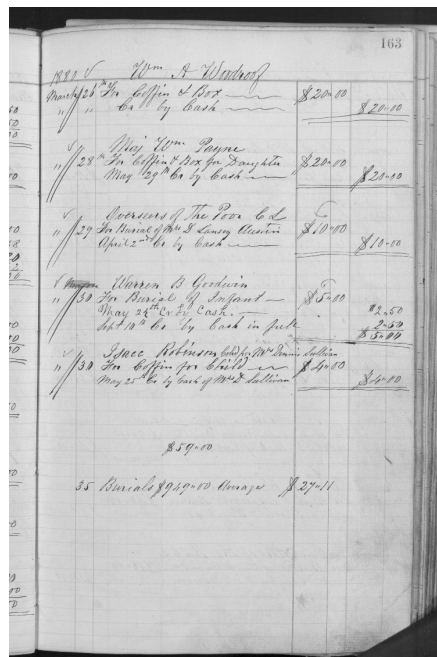 163
1880 Wm A Woodroof
March 26th For Coffin & Box $20-00
" " Cr by Cash $20-00
Maj Wm Payne
" 28th For Coffin & Box for Daughter $20-00
May 29th Cr by Cash $20-00
Overseers of The Poor C L
" 29 For Burial of Mrs D Lansey Austin $10-00
April 2nd Cr by Cash $10-00
Warren B Goodwin
" 30 For Burial of Infant $5-00
May 24th Cr by Cash $2-50
Sept 10th Cr by Cash in full 2-50
$5-00
Isaac Robinson Cold for Mrs Dennis Sullivan
" 30 For Coffin for Child $4-00
May 25th Cr by Cash of Mrs D. Sullivan $4-00
$59-00
35 Burials $949-00 Average $27-11